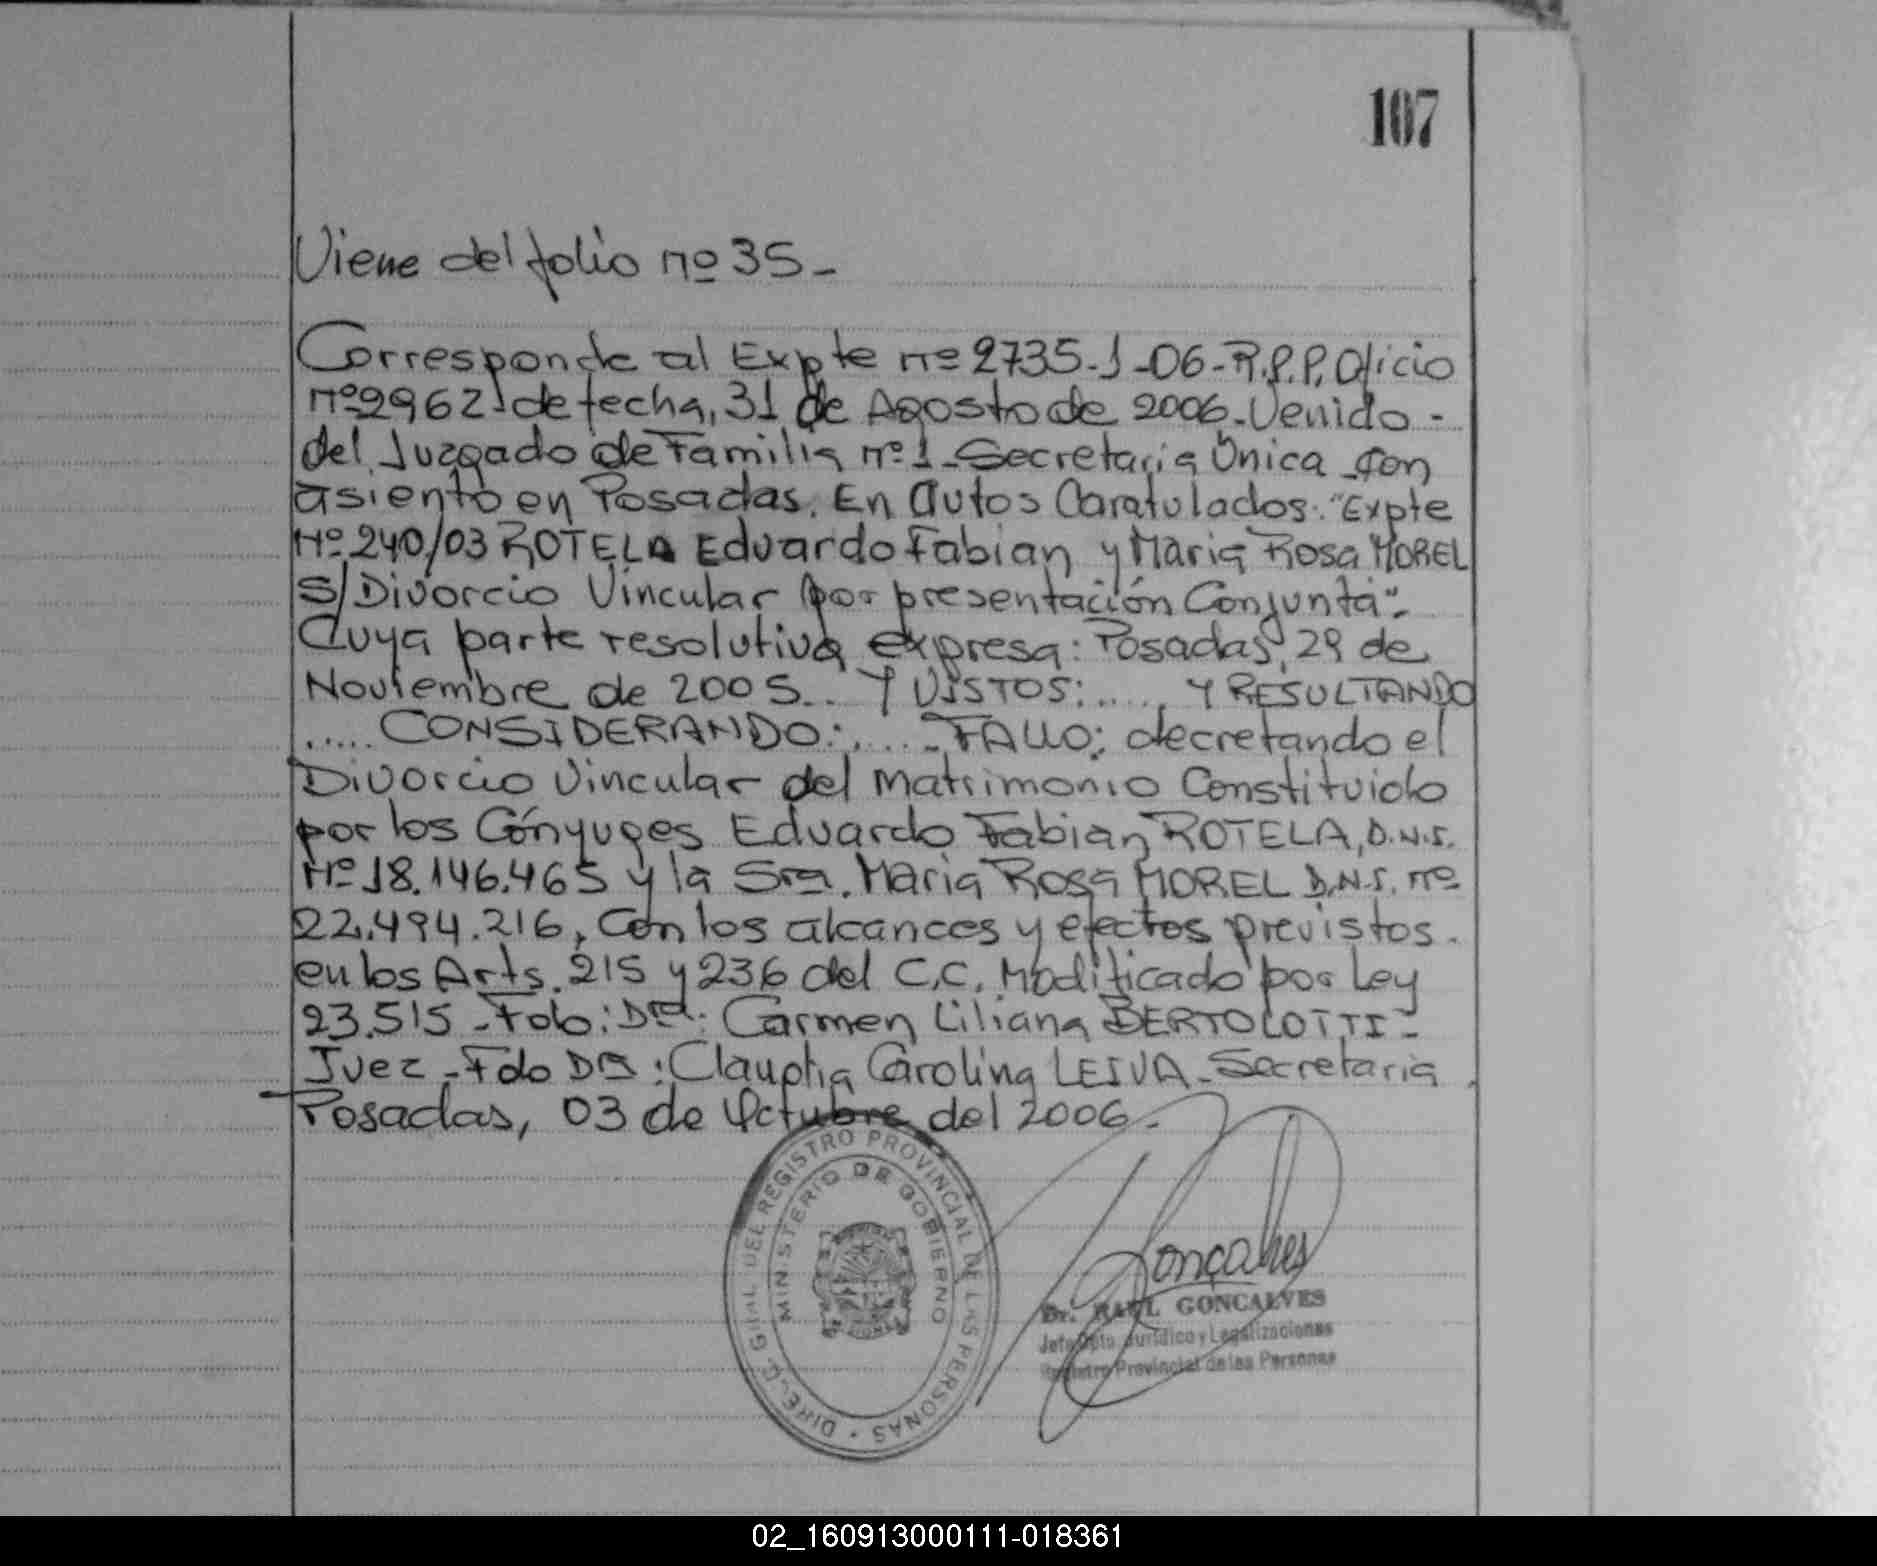 107
Viene del folio nº 35-
Corresponde al Expte nº 2735-J-06-R.P.P. Oficio
nº 2962 de fecha, 31 de Agosto de 2006-Venido-
del Juzgado de Familia nº 1-Secretaria Única con
asiento en Posadas. En autos Caratulados: "Expte
Nº 240/03 ROTELA Eduardo Fabian y Maria Rosa MOREL
S/ Divorcio Vincular por presentación Conjunta".
Cuya parte resolutiva expresa: Posadas, 29 de
Noviembre de 2005... Y VISTOS:..... Y RESULTANDO
..... CONSIDERANDO:..... FALLO: decretando el
Divorcio Vincular del Matrimonio Constituido
por los Cónyuges Eduardo Fabian ROTELA, D.N.I.
Nº 18.146.465 y la Sra. Maria Rosa MOREL D.N.I. nº
22.494.216, con los alcances y efectos previstos.
en los Arts. 215 y 236 del C.C. Modificado por Ley
23.515-Fdo: Dra: Carmen Liliana BERTOLOTTI-
Juez-Fdo Dra: Claudia Carolina LEIVA-Secretaria
Posadas, 03 de Octubre del 2006-
DIREC. GRAL DEL REGISTRO PROVINCIAL DE LAS PERSONAS
MINISTERIO DE GOBIERNO
Gonçalves
Dr. RAUL GONCALVES
Jefe Dpto. Jurídico y Legalizaciones
Registro Provincial de las Personas
02_160913000111-018361